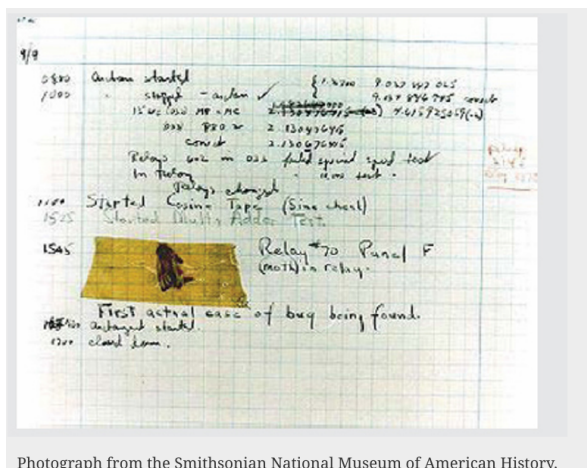 9/9
0800 Antan started
1000 " stopped - antan ✓ { 1.2700 9.037 847 025
9.037 846 995 correct
13'' UC (032) MP - MC 2.130476415 4.615925059(-2)
033 PRO 2 2.130476415
correct 2.130676415
Relays 6-2 in 033 failed special speed test
In Relay " test .
Relays changed
1100 Started Cosine Tape (Sine check)
1525 Started Multi Adder Test.
1545 Relay #70 Panel F
(moth) in relay.
First actual case of bug being found.
antangent started.
1700 closed down.
Photograph from the Smithsonian National Museum of American History.